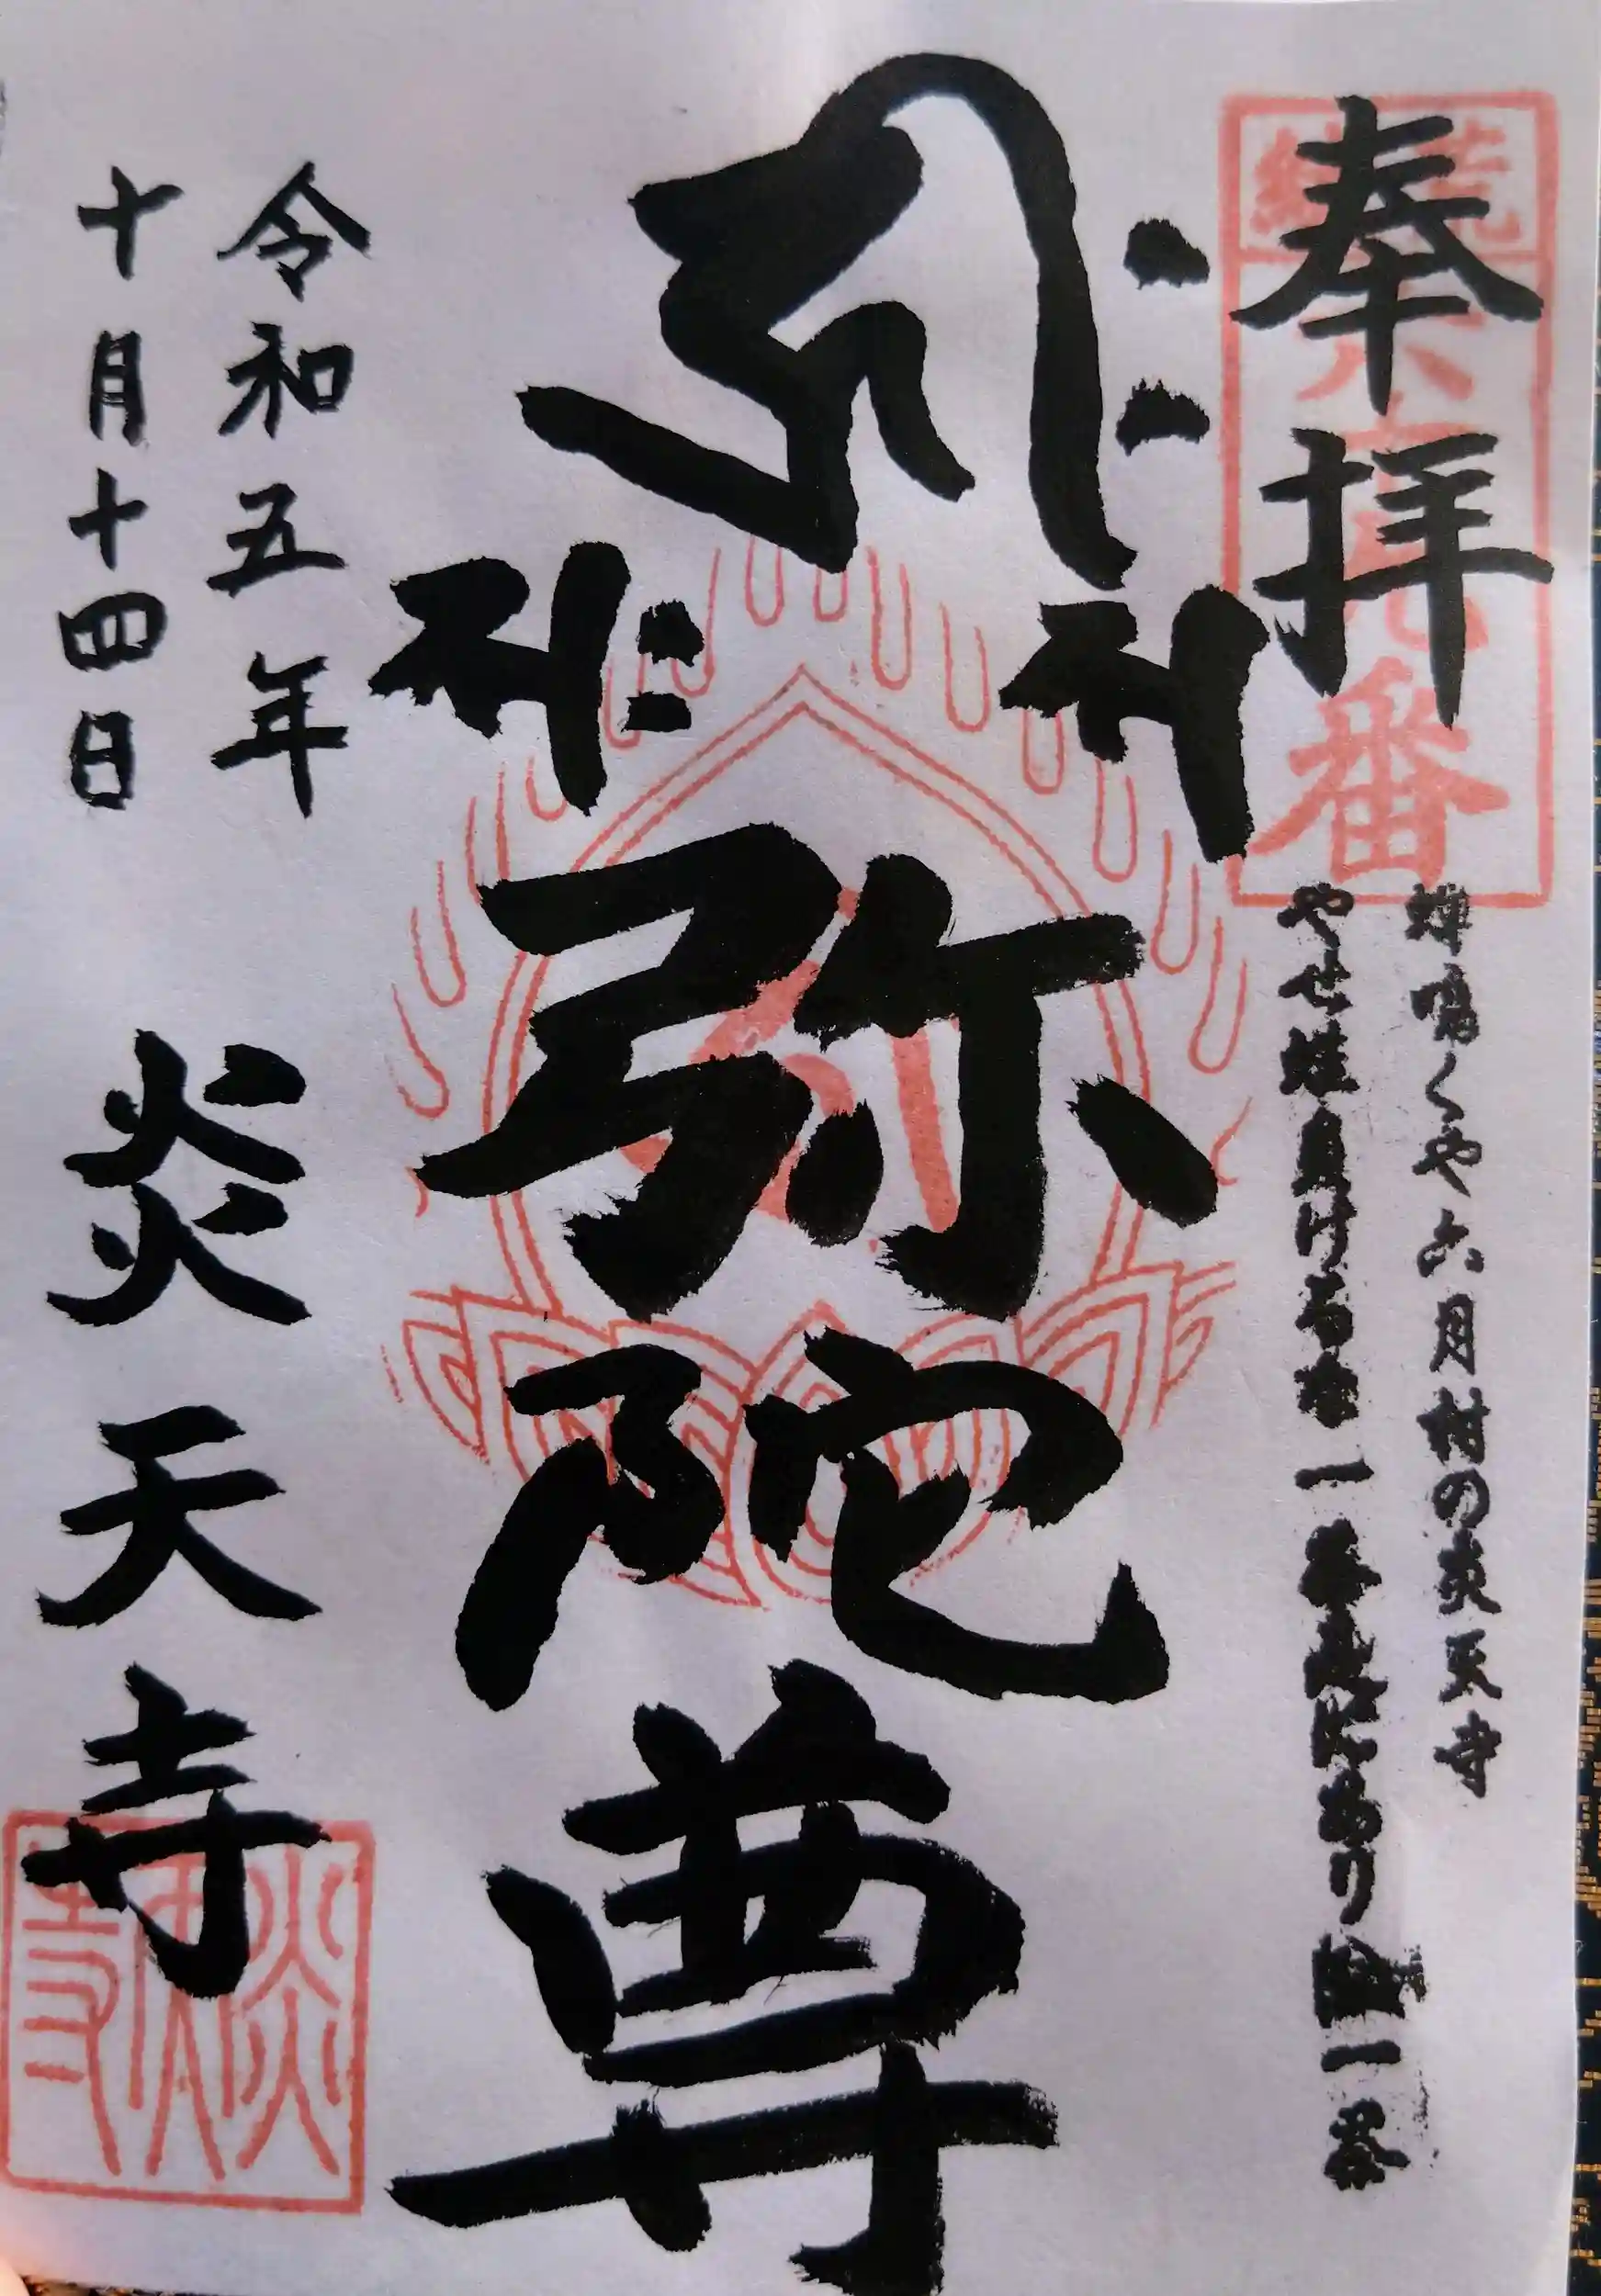 奉拝
番
蝉鳴くや六月村の炎天寺
やせ蛙負けるな一茶是にあり
一茶
弥陀尊
令和五年
十月十四日
炎天寺
炎天寺